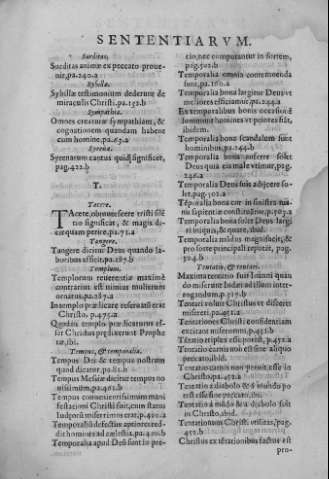 SENTENTIARVM.
Surditas.
Surditas animæ ex peccato proue-
nit, pa.240.a
Sybilla.
Sybillæ testimonium dederunt de
miraculis Christi, pa.152.b
Sympathia.
Omnes creaturæ sympathiam, &
cognationem quandam habent
cum homine, pa.67.a
Syrenæ.
Syrenarum cantus quid significet,
pag.422.b
T.
Tacere.
TAcere, obmutescere tristi
significat, & magis
perire, pa.71.a
Tangere.
Tangere dicitur Deus quando
pa.287.b
Templum.
Templorum reuerentiæ maximè
contrarius est nimius mulierum
ornatus, pa.287.a
In templo præclare referta est erat
Christo, p.475.a
Quædā templo præficaturus
Christus prædixerunt Prophe
tæ, ibi.
Tempus, & temporalia.
Tempus Dei & tempus nostrum
quod dicatur, pa.81.b
Tempus Messiæ dicitur tempus no
uissimum, pa.461.b
Tempus conuenientissimum mani
festationi Christi fuit, cum status
Iudæorū miserrimus erat, p.421.a
Temporaliū defectus aptiores red-
dit homines ad cælestia, pa.401.b
Temporalia apud Deū sunt in pre-
tio, nec computantur in sortem,
pag.502.b
Temporalia omnia contemnenda
sunt, pa.160.a
Temporalia bona largitur Deus vt
meliores efficiamur, pa.244.a
Ex temporalibus bonis occasionē
sumunt homines vt peiores fiāt,
ibidem.
Temporalia bona scandalum sunt
hominibus, pa.244.b
Temporalia bona auferre solet
Deus quia eis malè vtimur, pag.
246.a
Temporalia Deus suis adijcere so-
let, pag.301.a
Tēporalia bona
sapientiæ constitutione, p.503.a
Temporalia bona solet Deus largi
ri iniquis, & quare, ibid.
Temporalia mūdus magnificat, &
pro sorte principali reputat, pag.
504.a
Tentatio, & tentari.
Maxima tentatio fuit Ioanni quan
do miserunt Iudæi ad illum inter-
rogandum, p.317.b
Tentari voluit Christus vt disceret
misereri, pa.451.a
Tentationes Christi confidentiam
excitant miserorum, p.451.b
Tētatio triplex esse potest, p.452.a
Tentatio carnis non est sine aliquo
peccato, ibid.
Tentatio carnis non potuit esse in
Christo, pa.452.b
Tentatio à diabolo & à mundo po
test esse sine peccato, ibid.
Tentatio à mūdo & à diabolo fuit
in Christo, ibid.
Tentationum Christi vtilitas, pag.
452.b
Christus ex tētationibus factus est
pro-